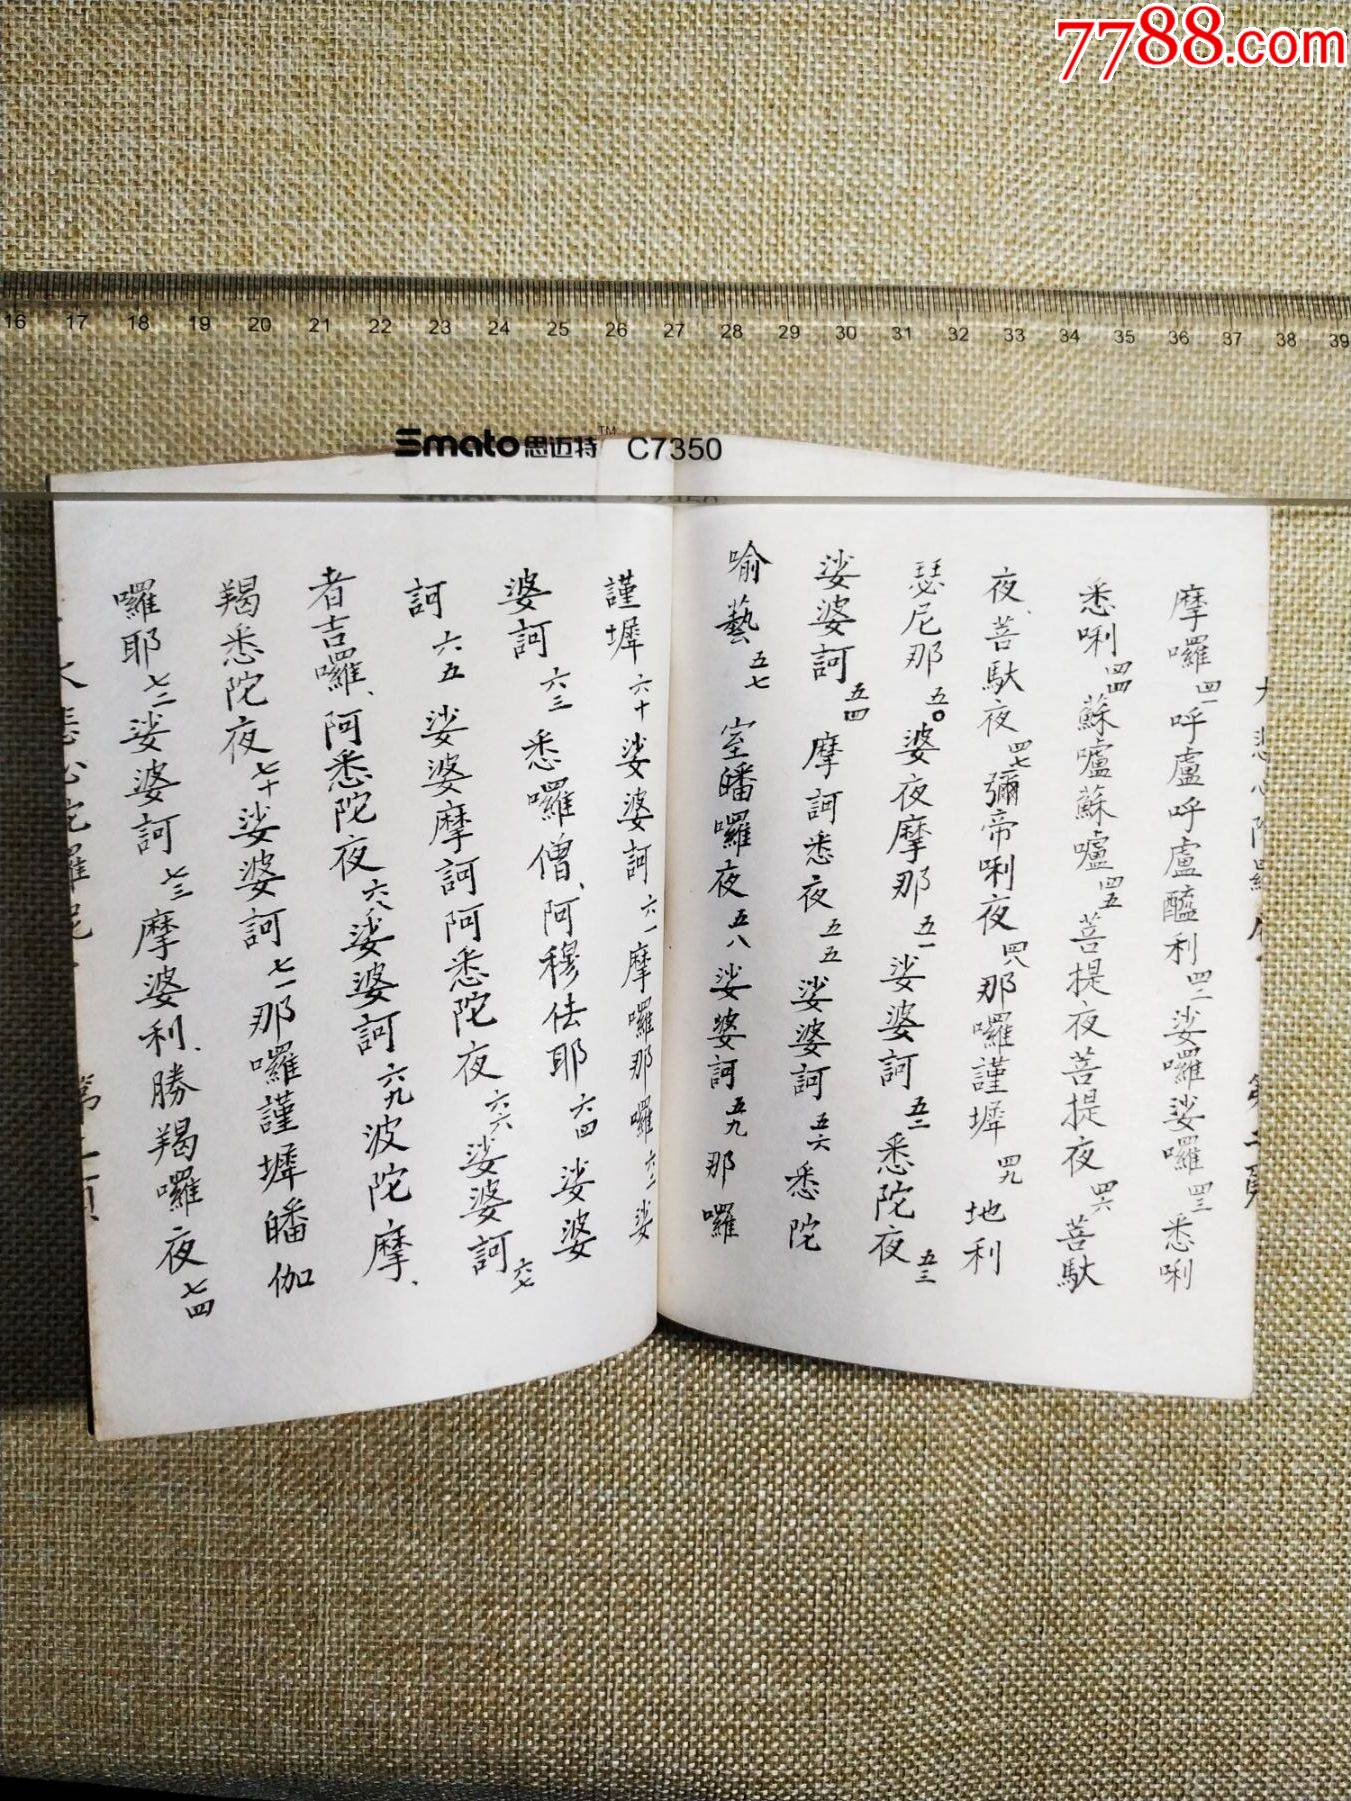 7788.com
16 17 18 19 20 21 22 23 24 25 26 27 28 29 30 31 32 33 34 35 36 37 38 39
Smato思迈特™ C7350
摩囉四一呼盧呼盧醯利四二娑囉娑囉四三悉唎
悉唎四四蘇嚧蘇嚧四五菩提夜菩提夜四六菩馱
夜、菩馱夜四七彌帝唎夜四八那囉謹墀四九地利
瑟尼那五〇婆夜摩那五一娑婆訶五二悉陀夜五三
娑婆訶五四摩訶悉夜五五娑婆訶五六悉陀
喻藝五七室皤囉夜五八娑婆訶五九那囉
謹墀六十娑婆訶六一摩囉那囉六二娑
婆訶六三悉囉僧、阿穆佉耶六四娑婆
訶六五娑婆摩訶阿悉陀夜六六娑婆訶六七
者吉囉、阿悉陀夜六八娑婆訶六九波陀摩、
羯悉陀夜七十娑婆訶七一那囉謹墀皤伽
囉耶七二娑婆訶七三摩婆利、勝羯囉夜七四
大悲心陀羅尼